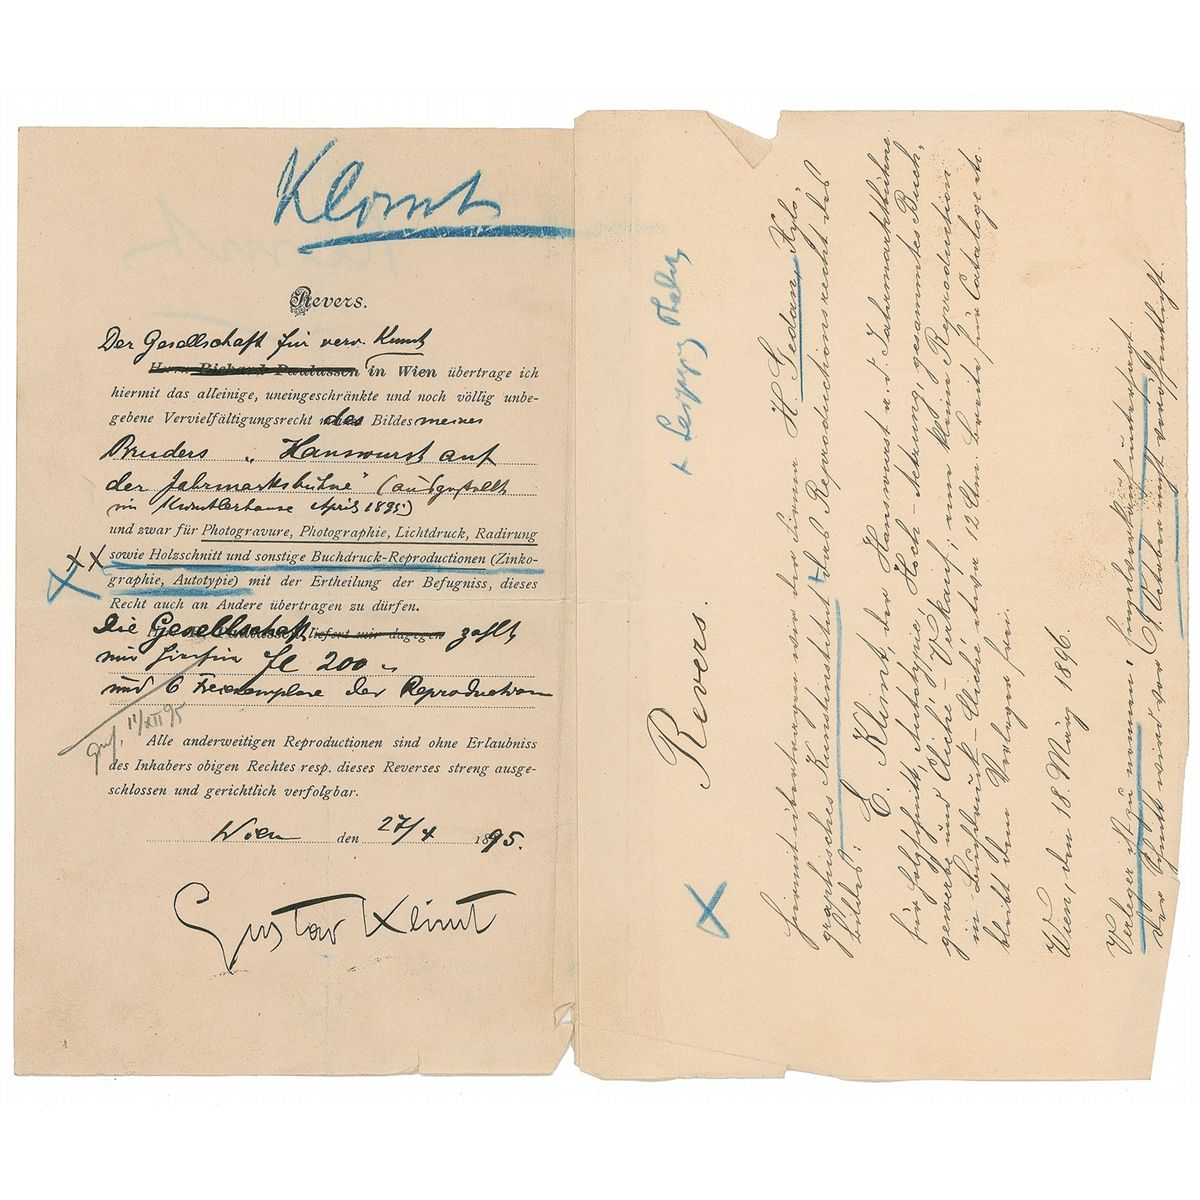 Klimt
Revers.
Der Gesellschaft für verv. Kunst
Herrn Richard Paulussen in Wien übertrage ich
hiermit das alleinige, uneingeschränkte und noch völlig unbe-
gebene Vervielfältigungsrecht des Bildes meines
Bruders „Hanswurst auf
der Jahrmarksbühne" (ausgestellt
im Künstlerhause April 1895)
und zwar für Photogravure, Photographie, Lichtdruck, Radirung
XX sowie Holzschnitt und sonstige Buchdruck-Reproductionen (Zinko-
X graphie, Autotypie) mit der Ertheilung der Befugniss, dieses
Recht auch an Andere übertragen zu dürfen.
Die Gesellschaft liefert mir dagegen zahlt
mir hierfür fl 200
und 6 Freiexemplare der Reproduction
Alle anderweitigen Reproductionen sind ohne Erlaubniss
des Inhabers obigen Rechtes resp. dieses Reverses streng ausge-
schlossen und gerichtlich verfolgbar.
Wien den 27/X 1895.
Gustav Klimt
+ Leipzig
Revers.
X
Hiermit übertragen wir der Firma H. Gedan, Xylo-
graphisches Kunstinstitut + das Reproductionsrecht des
Bildes:
E. Klimt, der Hanswurst a. d. Jahrmarktbühne
für Holzschnitt, Autotypie, Hoch-Aetzung, gesammtes Buch-
gewerbe und Cliché-Verkauf; nur kleine Reproduction
in Buchdruck-Cliché etwa 12 Ctm. breite für Cataloge etc.
bleibt dem Verleger frei.
Wien, den 18. März 1896.
Verleger ist zu nennen; Einzelverkauf untersagt.
Der Schnitt wird vor October 97 nicht veröffentlicht.